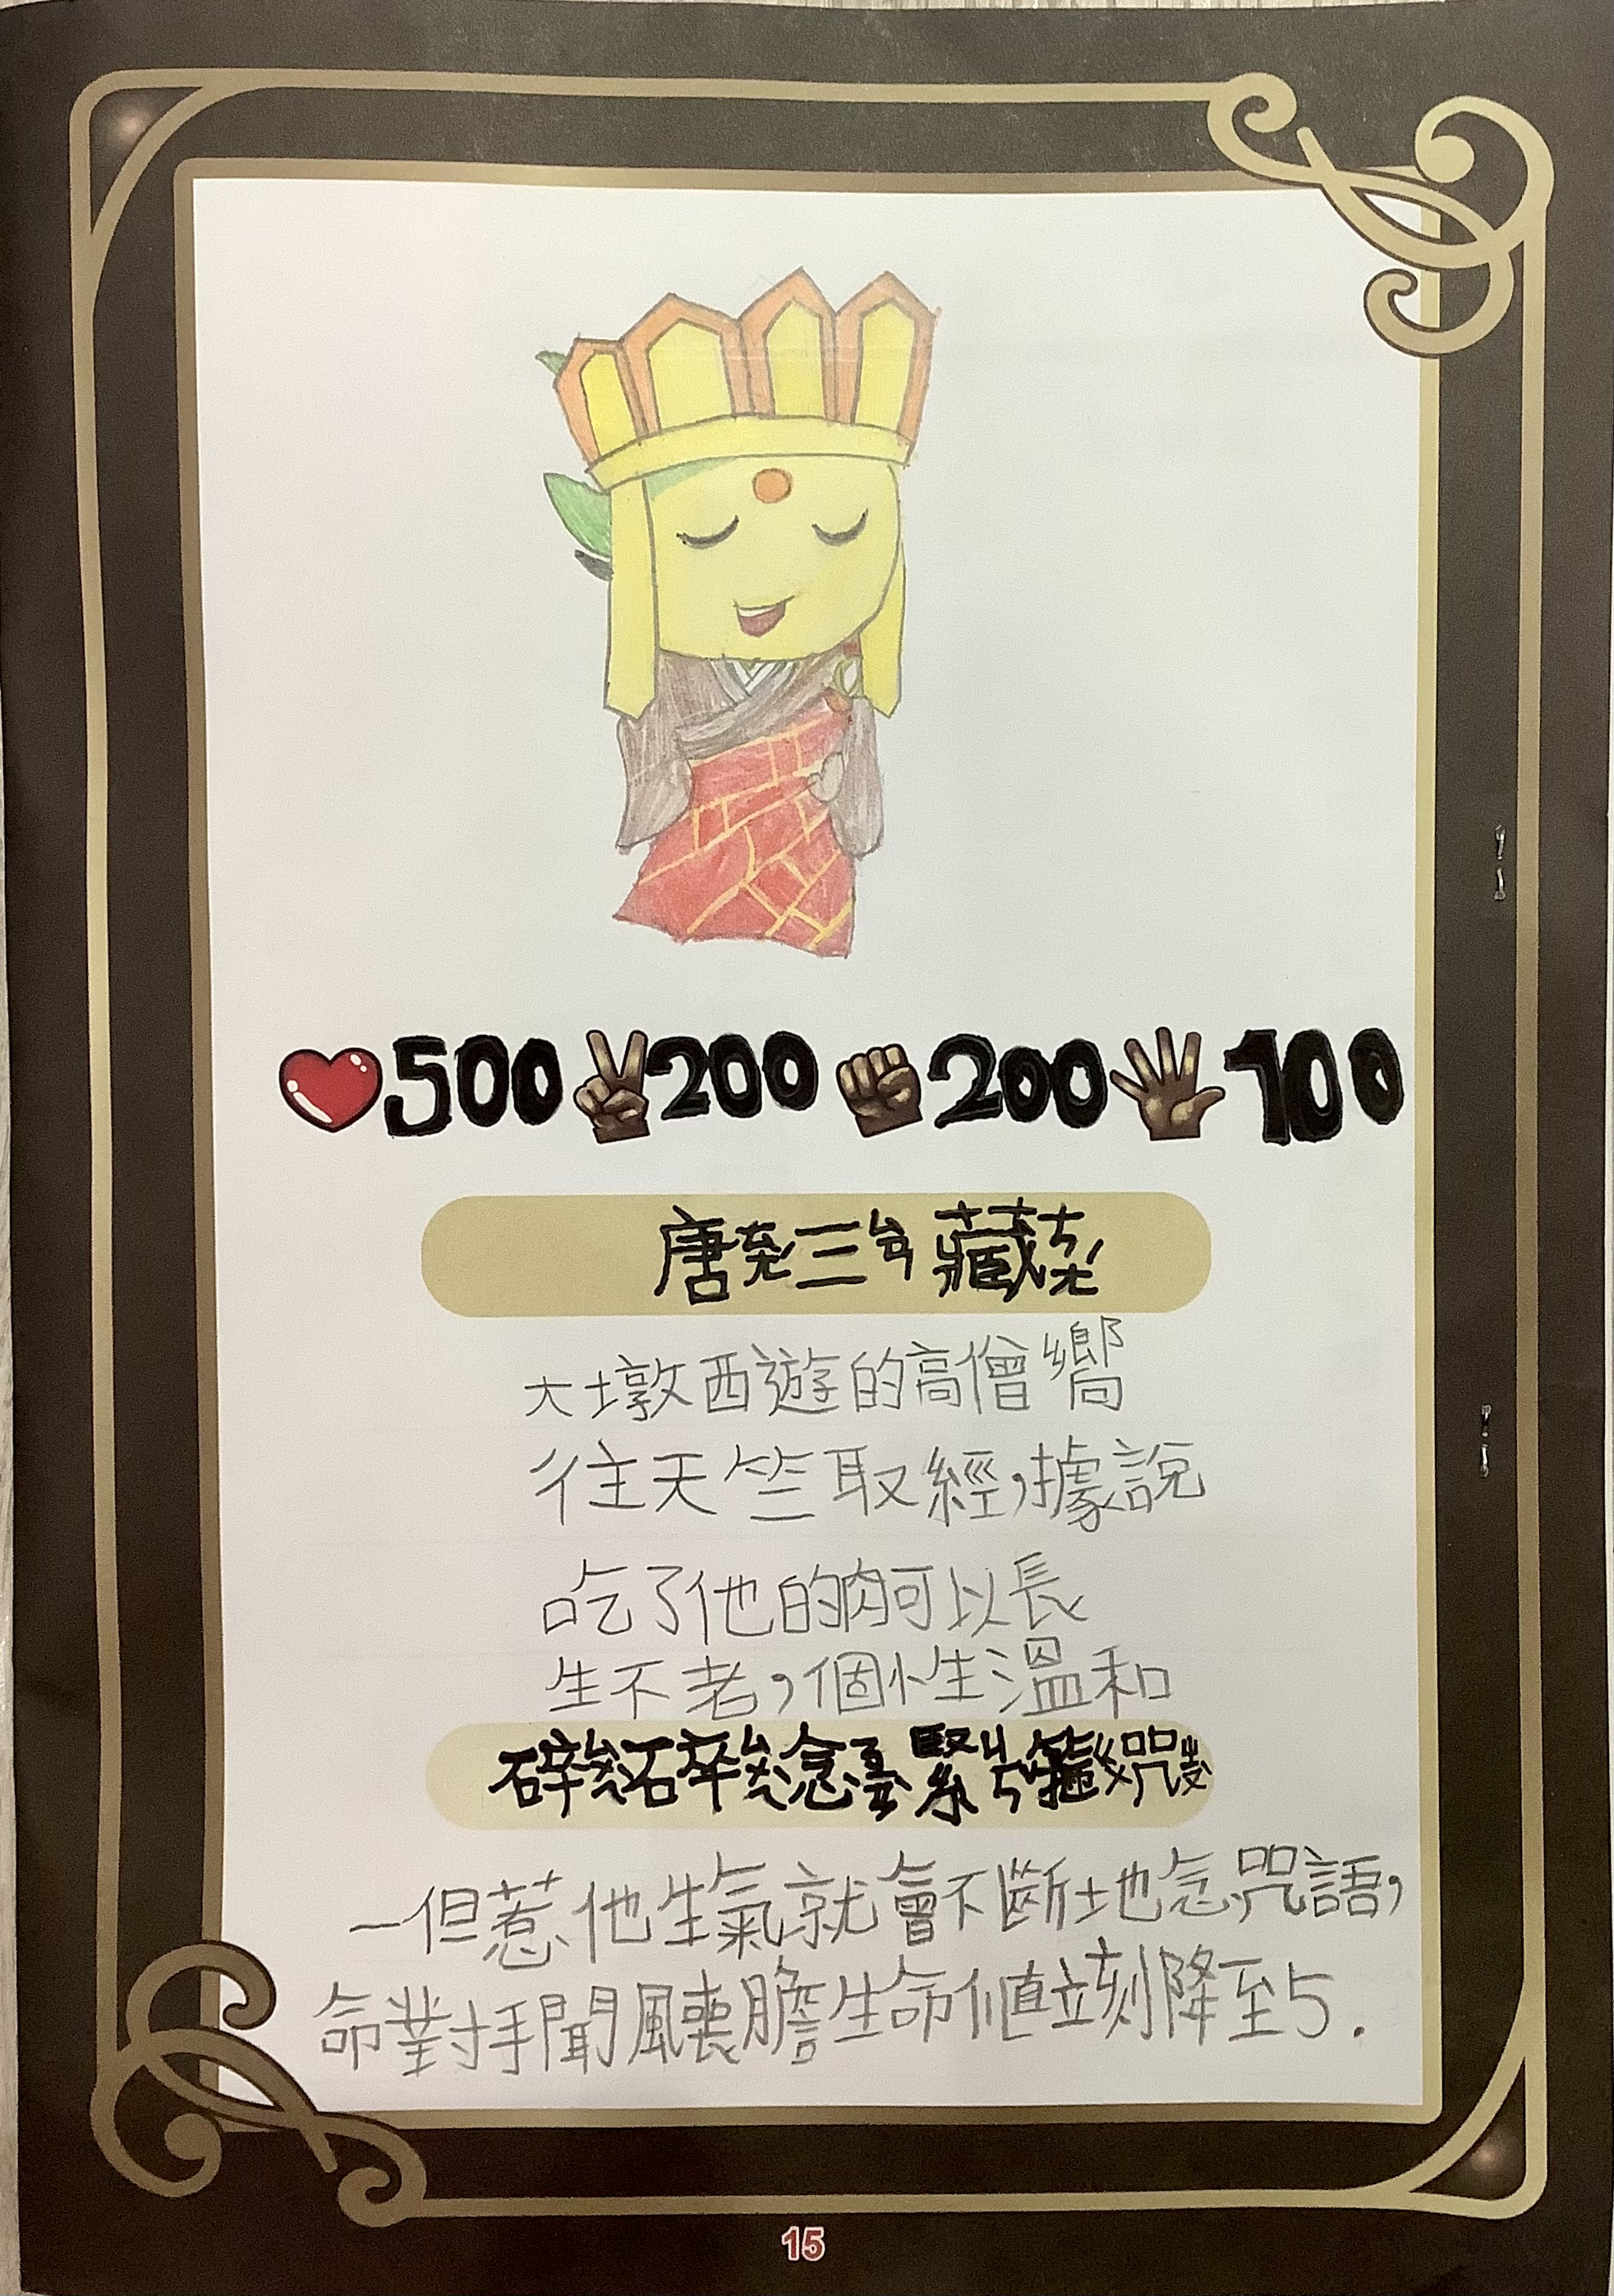 500 200 200 100
唐三藏
大墩西遊的高僧嚮
往天竺取經,據說
吃了他的肉可以長
生不老,個性溫和
碎碎念緊箍咒
一但惹他生氣就會不斷地念咒語,
命對手聞風喪膽生命值立刻降至5.
15